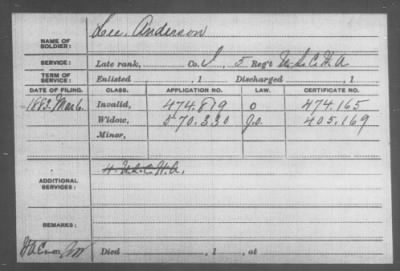 NAME OF SOLDIER: Lee, Anderson
SERVICE: Late rank, Co. I, 5 Reg't U.S.C.H.A
TERM OF SERVICE: Enlisted , 1 Discharged , 1
DATE OF FILING. CLASS. APPLICATION NO. LAW. CERTIFICATE NO.
1883. Mar 6. Invalid, 474.819 O 474.165
Widow, 570.330 G.O. 405.169
Minor,
ADDITIONAL SERVICES: H. U.S.C.H.A.
REMARKS:
Died , 1 , at